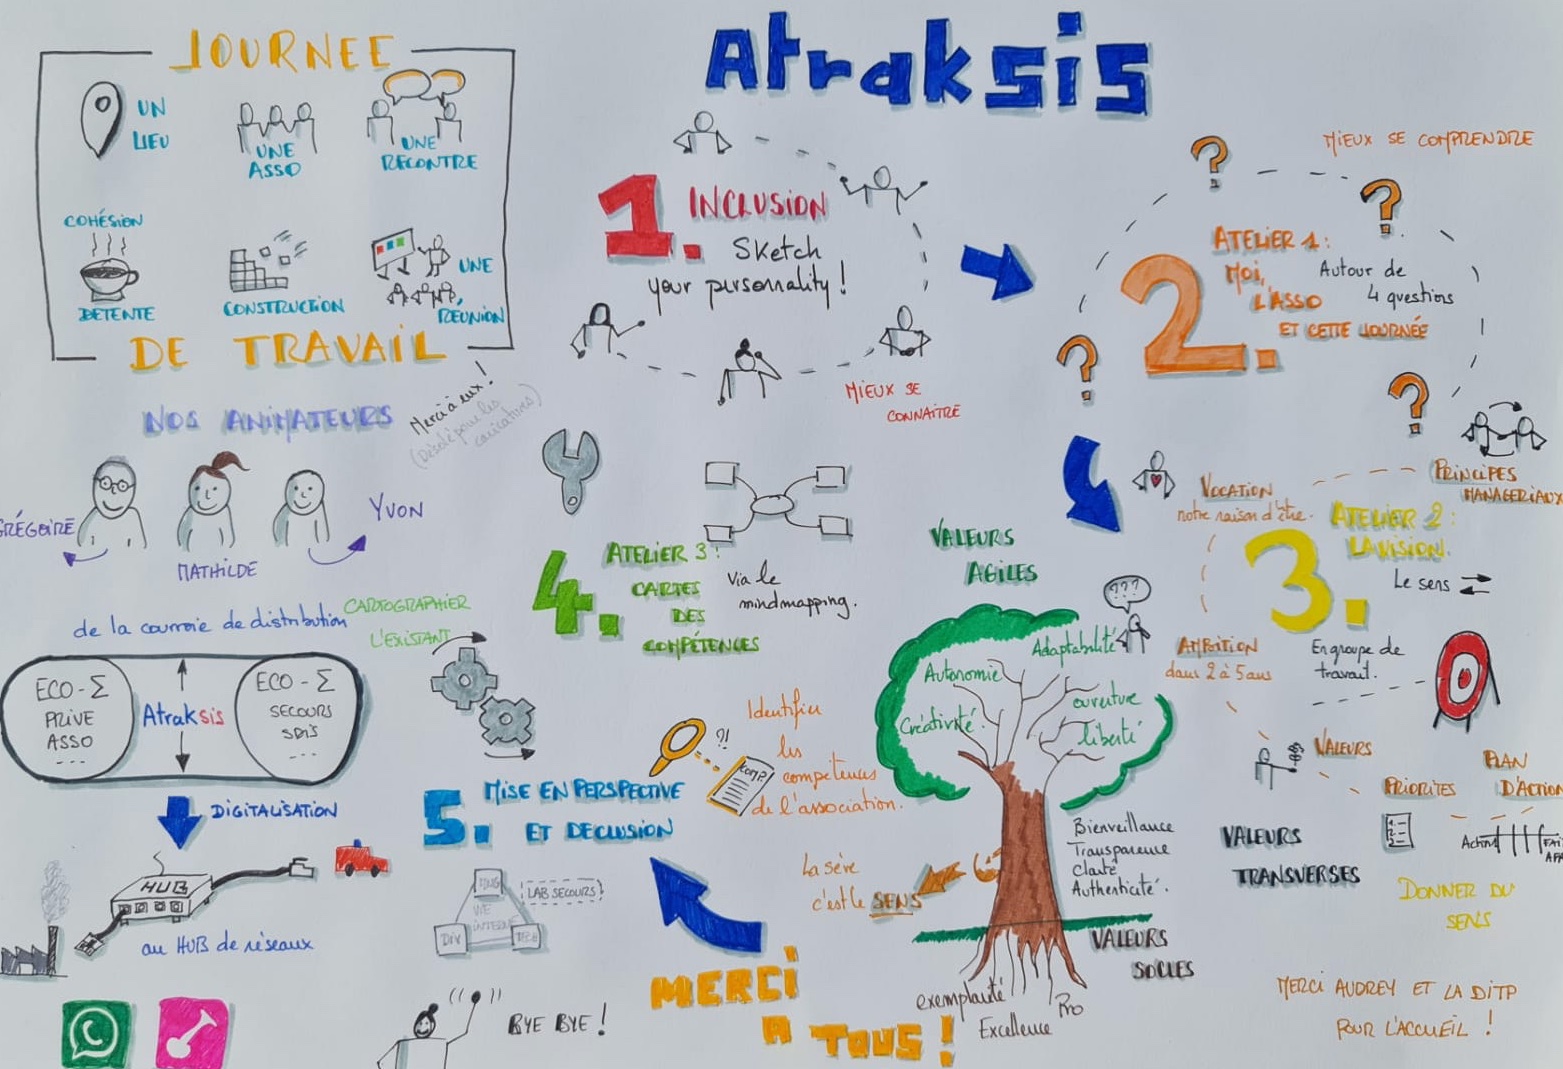 Atraksis
JOURNEE
UN
LIEU
UNE
ASSO
UNE
RECONTRE
COHÉSION
DETENTE
CONSTRUCTION
UNE
REUNION
DE TRAVAIL
NOS ANIMATEURS
Merci à eux !
(Désolé pour les
caricatures)
GRÉGOIRE
MATHILDE
YVON
1. INCLUSION
Sketch
your personnality !
MIEUX SE
CONNAITRE
MIEUX SE COMPRENDRE
2.
ATELIER 1 :
MOI,
L'ASSO
ET CETTE JOURNÉE
Autour de
4 questions
PRINCIPES
MANAGERIAUX
VOCATION
notre raison d'être.
3.
ATELIER 2 :
LA VISION.
Le sens
En groupe de
travail.
AMBITION
dans 2 à 5 ans
VALEURS
PRIORITES
PLAN
D'ACTION
Action
FAIT
DONNER DU
SENS
4.
ATELIER 3 :
CARTES
DES
COMPÉTENCES
Via le
mindmapping.
CARTOGRAPHIER
L'EXISTANT
?!
COMP.
Identifier
les
competences
de l'association.
VALEURS
AGILES
???
Adaptabilité
Autonomie
Créativité
ouverture
liberté
Bienveillance
Transparence
Clarté
Authenticité.
VALEURS
TRANSVERSES
La sève
c'est le SENS
VALEURS
SOCLES
exemplarité
Excellence
Pro
5.
MISE EN PERSPECTIVE
ET DECLUSION
LAB SECOURS
VIE
INTERNE
DIV
de la courroie de distribution
ECO-Σ
PRIVE
ASSO
---
Atraksis
ECO-Σ
SECOURS
SDIS
---
DIGITALISATION
HUB
au HUB de réseaux
BYE BYE !
MERCI
A TOUS !
MERCI AUDREY ET LA DITP
POUR L'ACCUEIL !